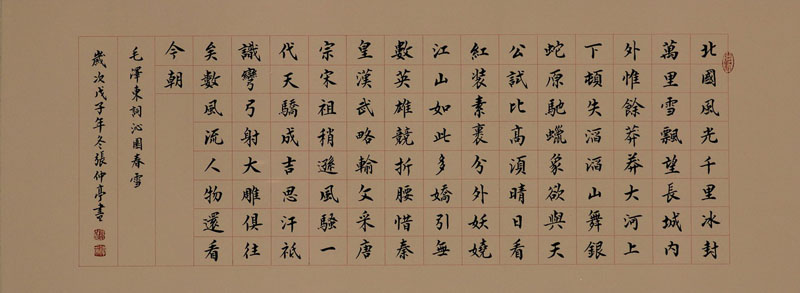 北國風光千里冰封
萬里雪飄望長城内
外惟餘莽莽大河上
下頓失滔滔山舞銀
蛇原馳蠟象欲與天
公試比高須晴日看
紅装素裹分外妖嬈
江山如此多嬌引無
數英雄競折腰惜秦
皇漢武略輸文采唐
宗宋祖稍遜風騷一
代天驕成吉思汗祗
識彎弓射大雕俱往
矣數風流人物還看
今朝
毛澤東詞沁園春雪
歲次戊子年冬張仲亭書